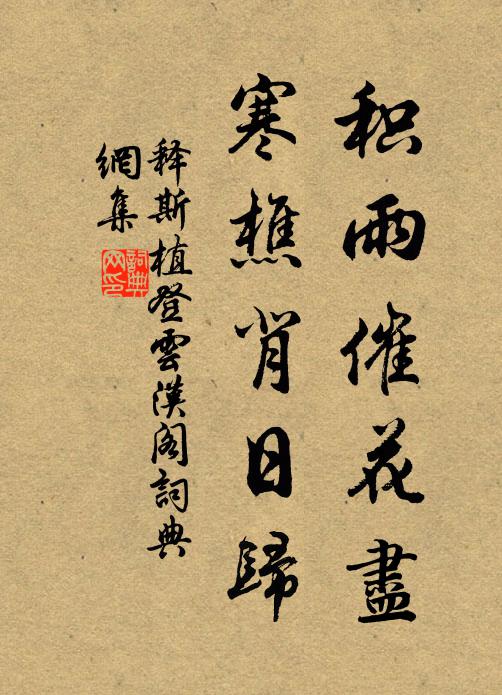 积雨催花盡
寒樵背日歸
释斯植登雲漢阁詞典
網集
詞典网印